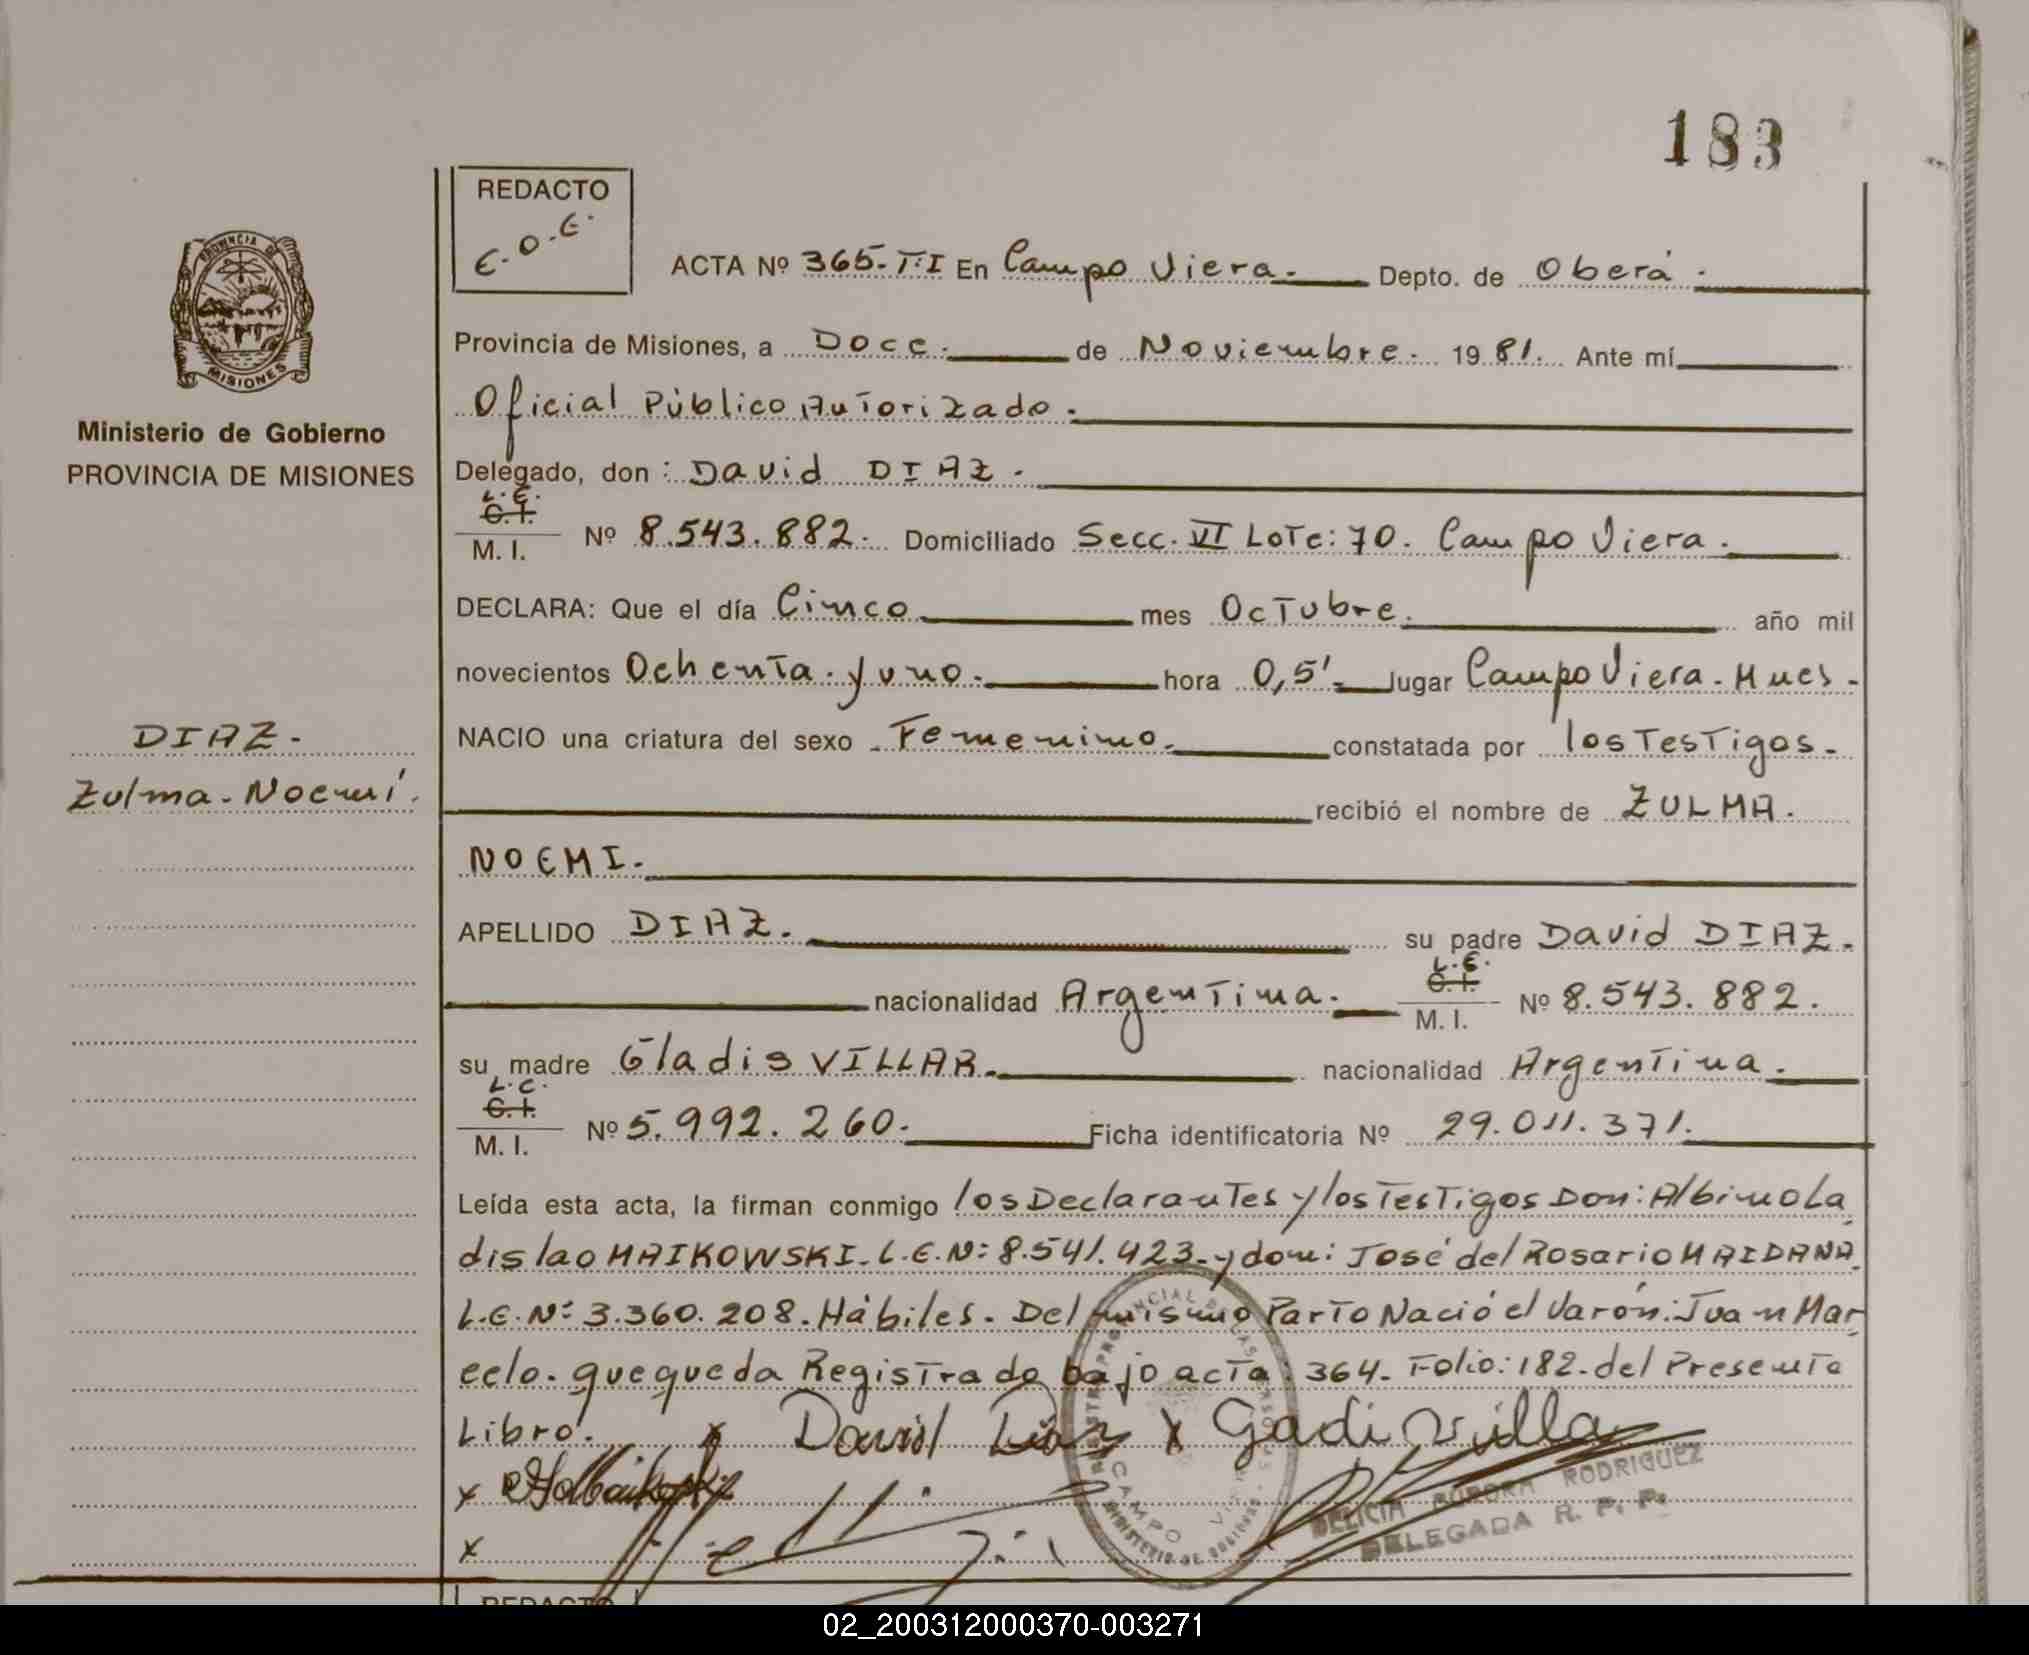 183
REDACTO
E.O.E.
PROVINCIA DE
MISIONES
ACTA Nº 365-T:I En Campo Viera. Depto. de Oberá.
Provincia de Misiones, a Doce. de Noviembre. 1981. Ante mí
Oficial Público Autorizado.
Ministerio de Gobierno
PROVINCIA DE MISIONES
Delegado, don: David DIAZ.
L.E.
C.I.
M. I. Nº 8.543.882. Domiciliado Secc. VI Lote: 70. Campo Viera.
DECLARA: Que el día Cinco mes Octubre. año mil
novecientos Ochenta. y uno. hora 0,5' lugar Campo Viera. Mnes.
DIAZ.
NACIO una criatura del sexo Femenino. constatada por los Testigos.
Zulma. Noemí.
recibió el nombre de ZULMA.
NOEMI.
APELLIDO DIAZ. su padre David DIAZ.
L.E.
C.I.
nacionalidad Argentina. M. I. Nº 8.543.882.
su madre Gladis VILLAR. nacionalidad Argentina.
L.C.
C.I.
M. I. Nº 5.992.260. Ficha identificatoria Nº 29.011.371.
Leída esta acta, la firman conmigo los Declarantes y los Testigos Don: Albino La
dislao MAIKOWSKI. L.E.Nº: 8.541.423. y don: José del Rosario MAIDANA.
L.E.Nº: 3.360.208. Hábiles. Del mismo Parto Nació el Varón: Juan Mar
celo. que queda Registrado bajo acta: 364. Folio: 182. del Presente
Libro. x David Diaz x Gadi Villa
x
x
CAMPO VIERA
MINISTERIO DE GOBIERNO
DELICIA AURORA RODRIGUEZ
DELEGADA R. P. P.
REDACTO
02_200312000370-003271